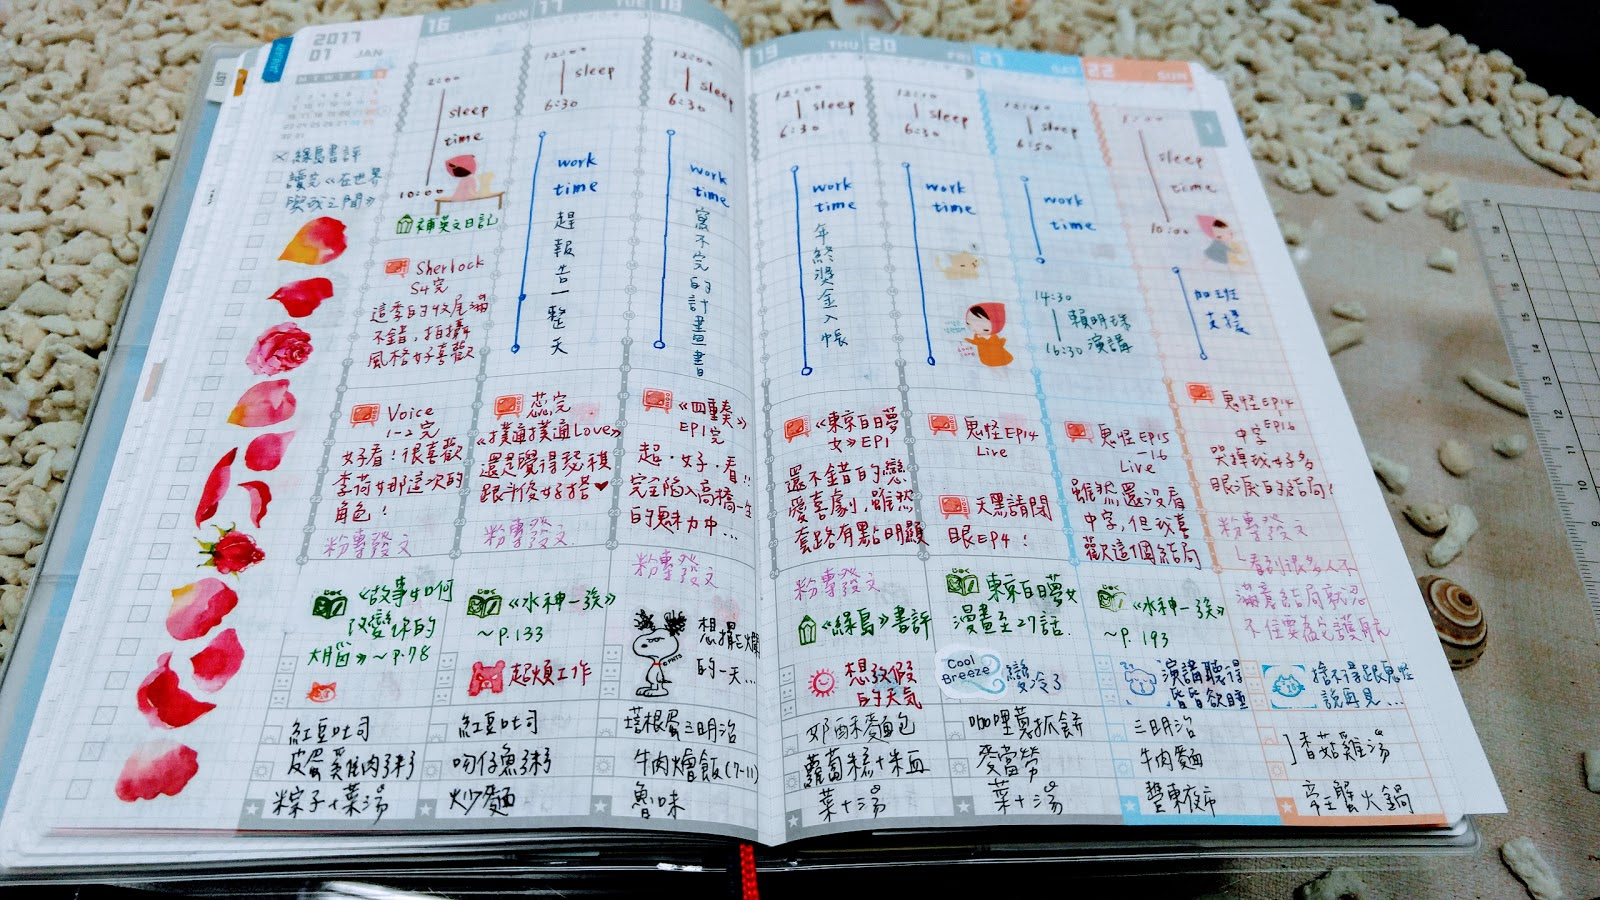 2017
01 JAN
×綠島書評
讀完《在世界
與我之間》
16 MON
2:00
sleep
time
10:00
補英文日記
Sherlock
S4完
這季的收尾滿
不錯,拍攝
風格好喜歡
Voice
1-2完
好看!很喜歡
李荷娜這次的
角色!
粉專發文
《故事如何
改變你的
大腦》~P.78
紅豆吐司
皮蛋雞肉粥
粽子+菜湯
17 TUE
12:00
sleep
6:30
work
time
趕報告一整天
《撲通撲通Love》
還是覺得
跟斗俊好搭♥
粉專發文
《水神一族》
~P.133
超煩工作
紅豆吐司
吻仔魚粥
炒麵
18
12:00
sleep
6:30
work
time
寫不完的計畫書
《四重奏》
EP1完
超·好·看!!
完全陷入高橋一生
的魅力中...
粉專發文
想擺
的一天...
培根蛋三明治
牛肉燴飯(7-11)
魯味
19 THU
12:00
sleep
6:30
work
time
年終獎金入帳
《東京白日夢
女》EP1
還不錯的戀
愛喜劇,雖然
套路有點明顯
粉專發文
《綠島》書評
想放假
的天氣
麵包
蘿蔔糕+米血
菜+湯
20 FRI
sleep
6:30
work
time
鬼怪EP14
Live
天黑請閉
眼EP4!
東京白日夢女
漫畫至27話.
Cool
Breeze
變冷了
咖哩蔥抓餅
麥當勞
菜+湯
21 SAT
sleep
6:50
work
time
14:30
賴明珠
16:30 演講
鬼怪EP15
-16
Live
雖然還沒看
中字,但我喜
歡這個結局
《水神一族》
~P.193
演講聽得
皆皆欲睡
三明治
牛肉麵
豐東夜市
22 SUN
sleep
time
10:00
加班
支援
鬼怪EP14
EP16
中字
哭掉我好多
眼淚的結局!
粉專發文
看到很多人不
滿意結局就忍
不住要為它護航
捨不得跟鬼怪
說再見...
香菇雞湯
帝王蟹火鍋